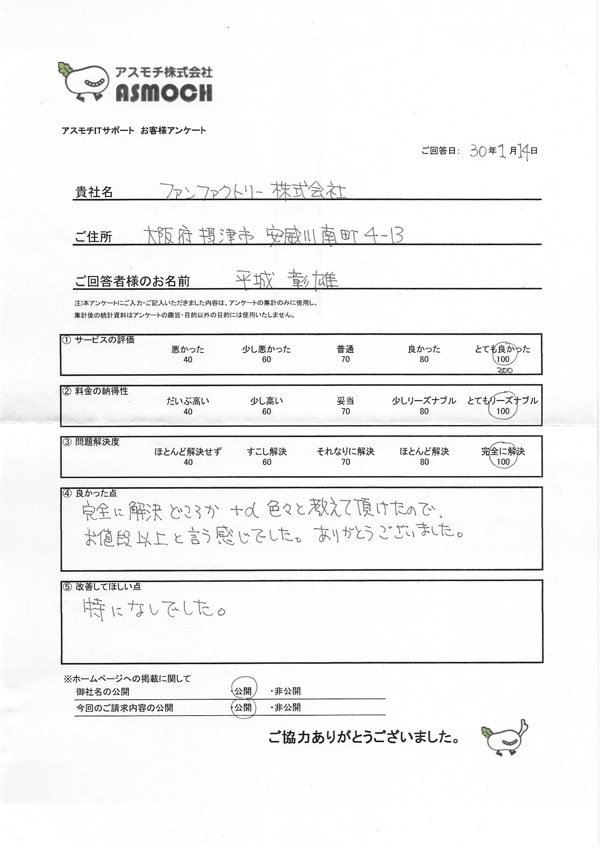 アスモチ株式会社
ASMOCH
アスモチITサポート お客様アンケート
ご回答日: 30年1月14日
貴社名 ファンファクトリー 株式会社
ご住所 大阪府 摂津市 安威川南町 4-13
ご回答者様のお名前 平城 彰雄
注)本アンケートにご入力・ご記入いただきました内容は、アンケートの集計のみに使用し、
集計後の統計資料はアンケートの趣旨・目的以外の目的には使用いたしません。
① サービスの評価
悪かった 少し悪かった 普通 良かった とても良かった
40 60 70 80 100
200
② 料金の納得性
だいぶ高い 少し高い 妥当 少しリーズナブル とてもリーズナブル
40 60 70 80 100
③ 問題解決度
ほとんど解決せず すこし解決 それなりに解決 ほとんど解決 完全に解決
40 60 70 80 100
④ 良かった点
完全に解決どころか +α 色々と教えて頂けたので、
お値段以上と言う感じでした。ありがとうございました。
⑤ 改善してほしい点
特になしでした。
※ホームページへの掲載に関して
御社名の公開 ・公開 ・非公開
今回のご請求内容の公開 ・公開 ・非公開
ご協力ありがとうございました。